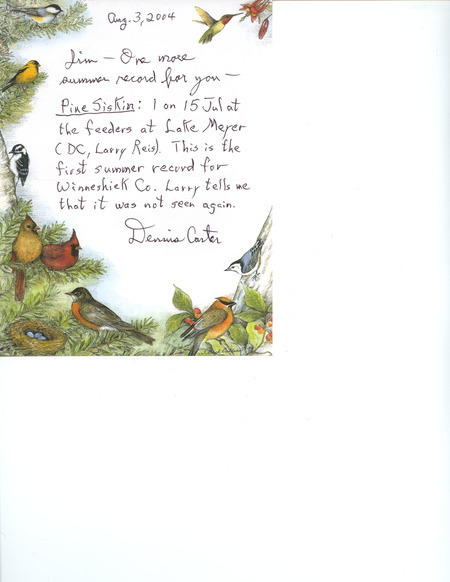 Aug. 3, 2004
Jim — One more
summer record for you —
Pine Siskin: 1 on 15 Jul at
the feeders at Lake Meyer
(DC, Larry Reis). This is the
first summer record for
Winneshiek Co. Larry tells me
that it was not seen again.
Dennis Carter